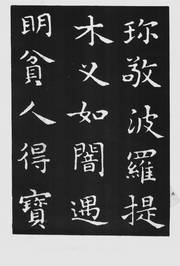 珎敬波羅提
木叉如闇遇
明貧人得寶